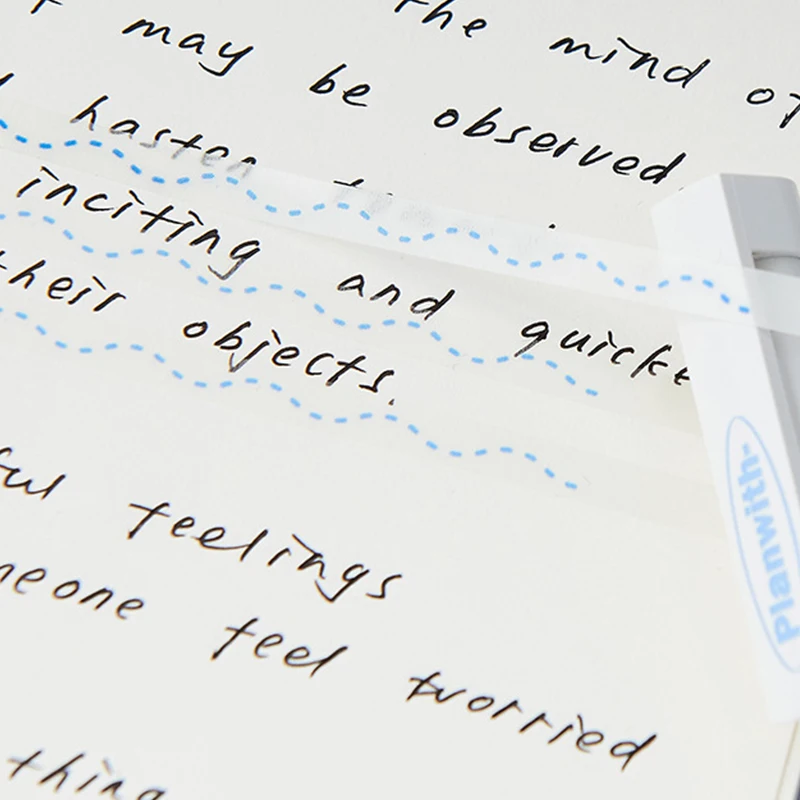 the mind of
may be observed,
hasten
inciting and quicke
their objects.
ful feelings
meone feel worried
thing
Planwith-